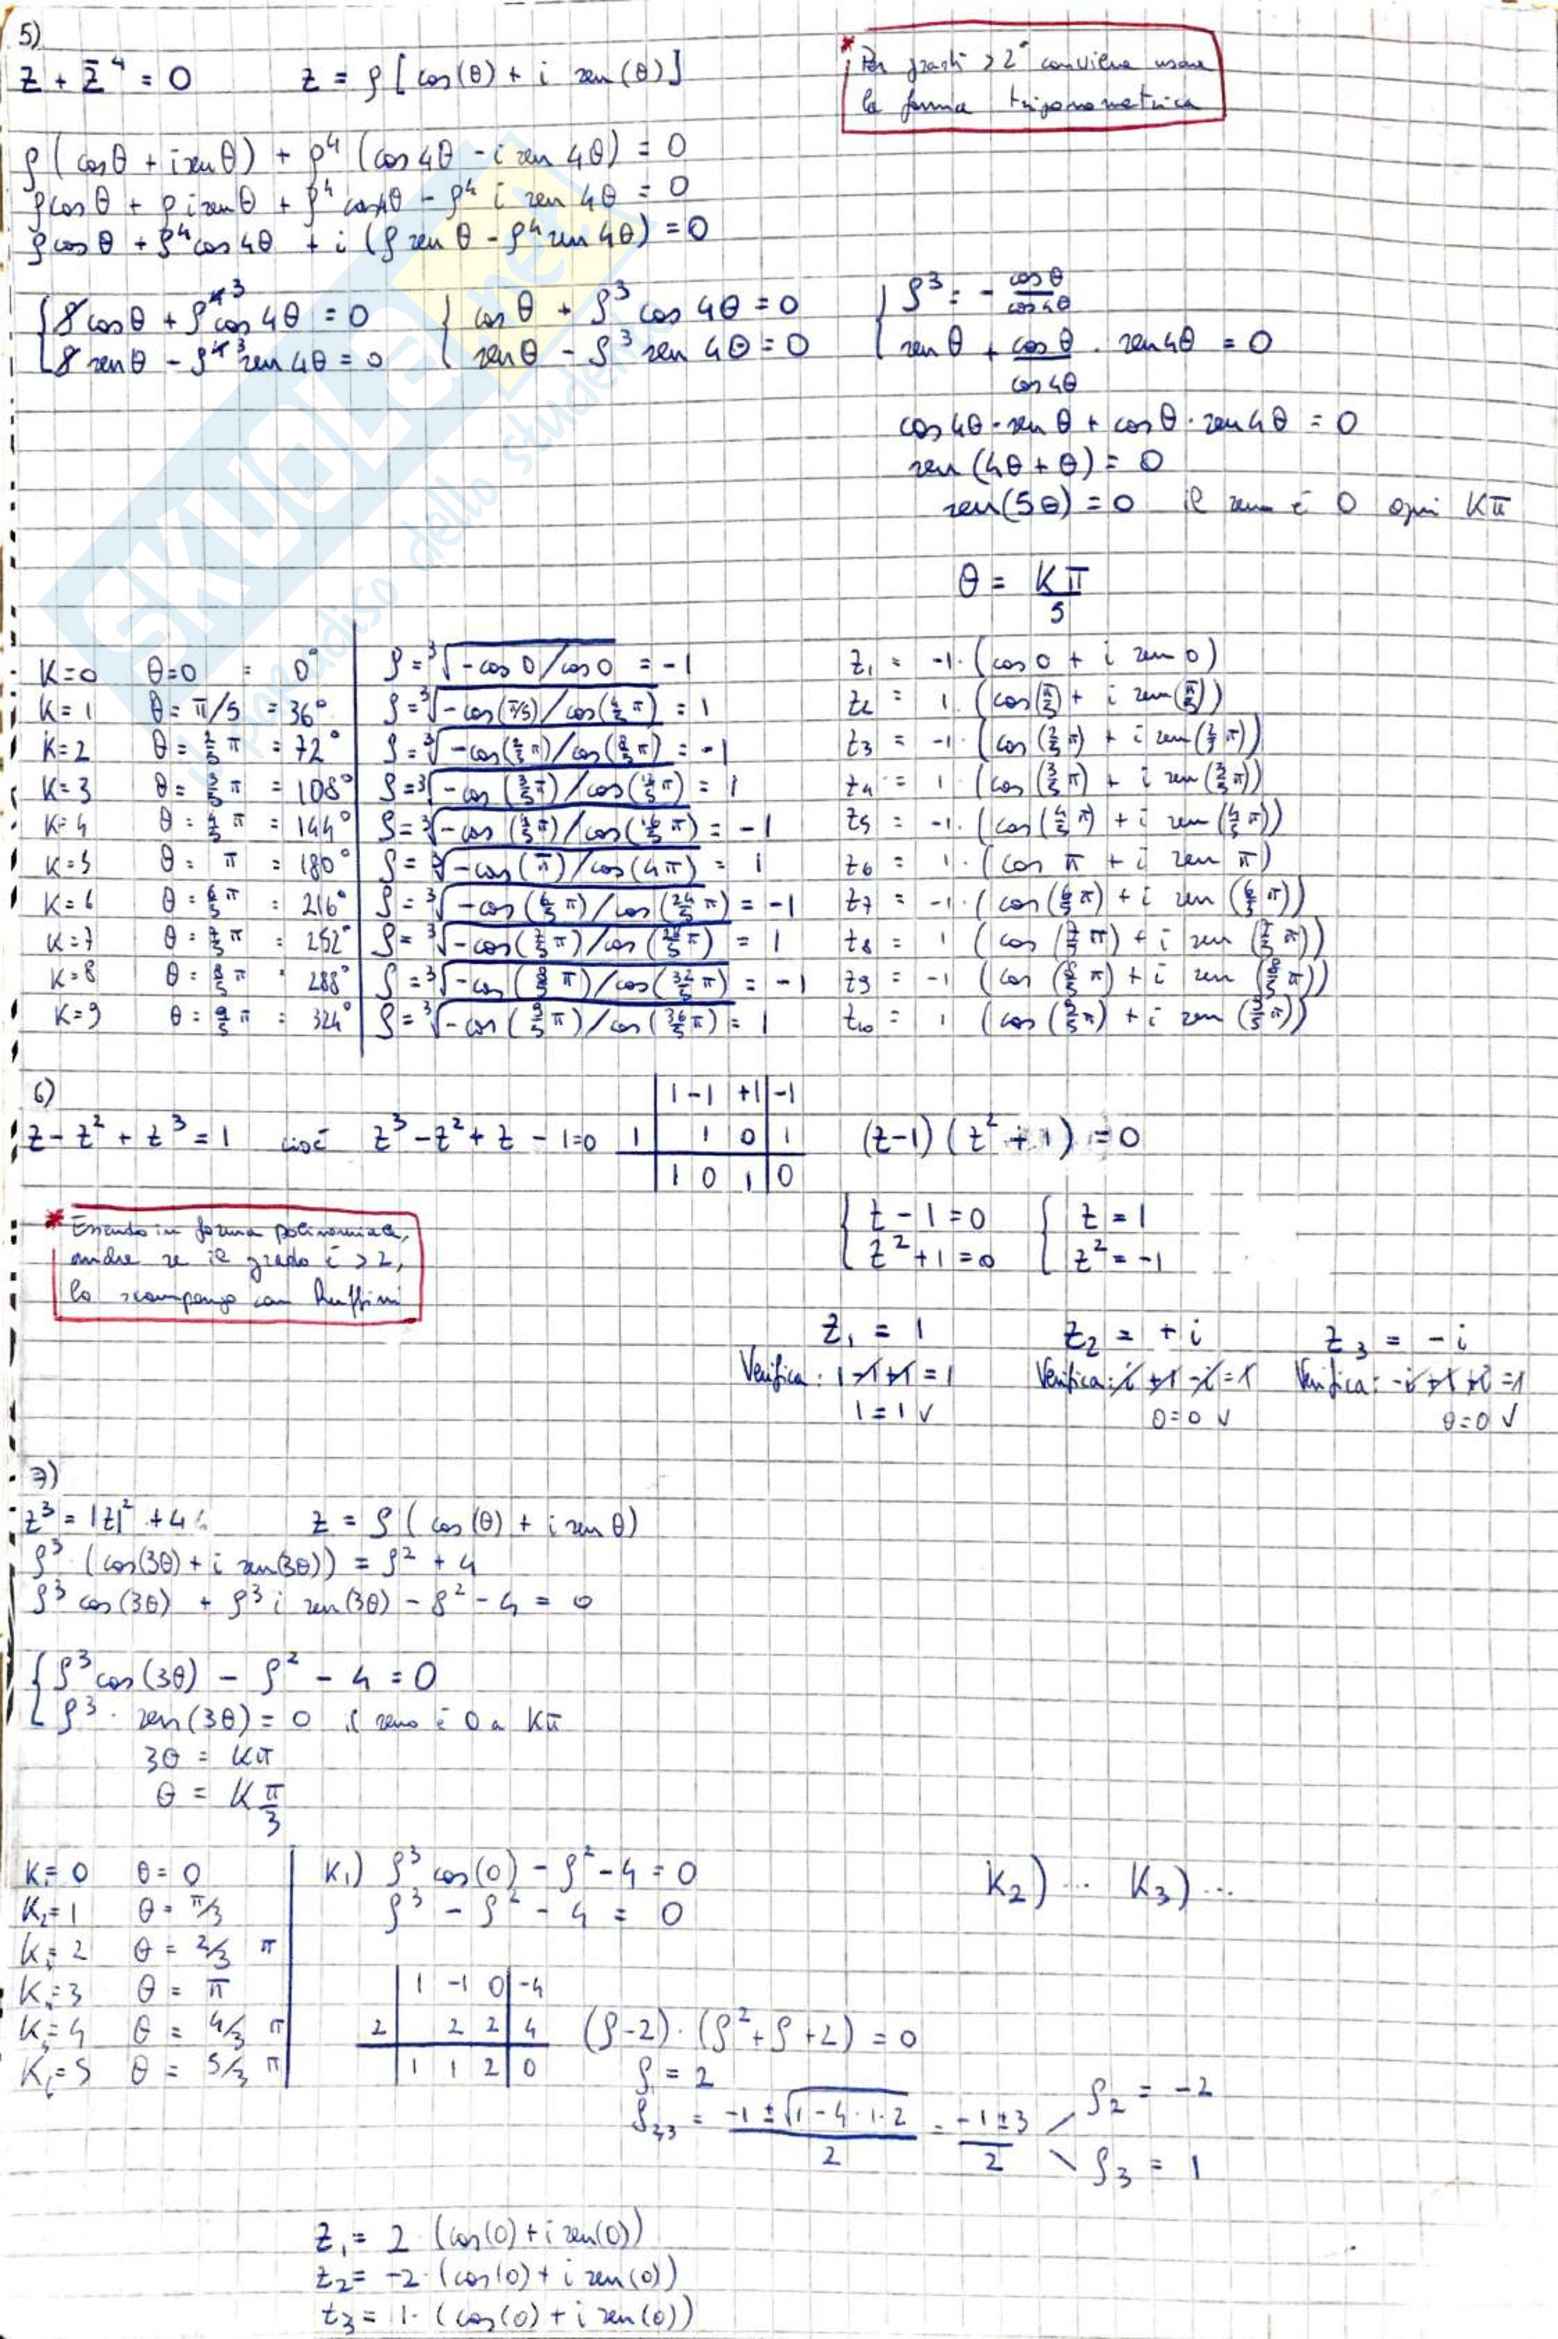 5)
z + z̄⁴ = 0    z = ρ [cos(θ) + i sen(θ)]
* Per gradi > 2° conviene usare
la forma trigonometrica
ρ(cosθ + i senθ) + ρ⁴ (cos 4θ - i sen 4θ) = 0
ρcosθ + ρ i senθ + ρ⁴ cos4θ - ρ⁴ i sen 4θ = 0
ρcosθ + ρ⁴cos 4θ + i (ρ sen θ - ρ⁴ sen 4θ) = 0
{ ρcosθ + ρ⁴³cos 4θ = 0    { cosθ + ρ³ cos 4θ = 0    { ρ³ = - cosθ/cos4θ
{ ρsenθ - ρ⁴³sen 4θ = 0    { senθ - ρ³ sen 4θ = 0    { senθ + cosθ/cos4θ · sen4θ = 0
cos4θ·senθ + cosθ·sen4θ = 0
sen(4θ+θ) = 0
sen(5θ) = 0 il seno è 0 ogni Kπ
θ = Kπ/5
K=0 θ=0 = 0° ρ = ³√-cos 0/cos 0 = -1 z₁ = -1·(cos 0 + i sen 0)
K=1 θ=π/5 = 36° ρ=³√-cos(π/5)/cos(4/5 π) = 1 z₂ = 1·(cos(π/5) + i sen(π/5))
K=2 θ=2/5 π = 72° ρ=³√-cos(2/5 π)/cos(8/5 π) = -1 z₃ = -1·(cos(2/5 π) + i sen(2/5 π))
K=3 θ=3/5 π = 108° ρ=³√-cos(3/5 π)/cos(12/5 π) = 1 z₄ = 1 (cos(3/5 π) + i sen(3/5 π))
K=4 θ=4/5 π = 144° ρ=³√-cos(4/5 π)/cos(16/5 π) = -1 z₅ = -1·(cos(4/5 π) + i sen(4/5 π))
K=5 θ= π = 180° ρ=³√-cos(π)/cos(4π) = 1 z₆ = 1·(cos π + i sen π)
K=6 θ=6/5 π = 216° ρ=³√-cos(6/5 π)/cos(24/5 π) = -1 z₇ = -1·(cos(6/5 π) + i sen(6/5 π))
K=7 θ=7/5 π = 252° ρ=³√-cos(7/5 π)/cos(28/5 π) = 1 z₈ = 1 (cos(7/5 π) + i sen(7/5 π))
K=8 θ=8/5 π = 288° ρ=³√-cos(8/5 π)/cos(32/5 π) = -1 z₉ = -1 (cos(8/5 π) + i sen(8/5 π))
K=9 θ=9/5 π = 324° ρ=³√-cos(9/5 π)/cos(36/5 π) = 1 z₁₀ = 1 (cos(9/5 π) + i sen(9/5 π))
6)
1 -1 +1 -1
z - z² + z³ = 1 cioè z³ - z² + z - 1=0 1 1 0 1 (z-1)(z²+1) = 0
1 0 1 0
* Essendo in forma polinomiale,
anche se il grado è >2,
lo scompongo con Ruffini
{ z - 1 = 0    { z = 1
{ z² + 1 = 0    { z² = -1
z₁ = 1    z₂ = +i    z₃ = -i
Verifica: 1 -1+1 = 1    Verifica: i +1 -i = 1    Verifica: -i +1 +i = 1
1 = 1 √    0=0 √    0=0 √
7)
z³ = |z|² + 4    z = ρ (cos(θ) + i sen θ)
ρ³ (cos(3θ) + i sen(3θ)) = ρ² + 4
ρ³ cos(3θ) + ρ³ i sen(3θ) - ρ² - 4 = 0
{ ρ³cos(3θ) - ρ² - 4 = 0
{ ρ³ · sen(3θ) = 0 il seno è 0 a Kπ
3θ = Kπ
θ = K π/3
K₁=0 θ=0    K₁) ρ³ cos(0) - ρ² - 4 = 0    K₂)...  K₃)...
K₂=1 θ=π/3    ρ³ - ρ² - 4 = 0
K=2 θ=2/3 π
K=3 θ= π    1 -1 0 -4
K=4 θ= 4/3 π    2 2 2 4    (ρ-2)·(ρ²+ρ+2) = 0
K=5 θ= 5/3 π    1 1 2 0    ρ₁ = 2
ρ₂,₃ = -1 ± √1-4·1·2 / 2 = -1±3 / 2    ρ₂ = -2
ρ₃ = 1
z₁ = 2 (cos(0) + i sen(0))
z₂ = -2·(cos(0) + i sen(0))
z₃ = 1·(cos(0) + i sen(0))
SKUOLA.net
il paradiso dello studente